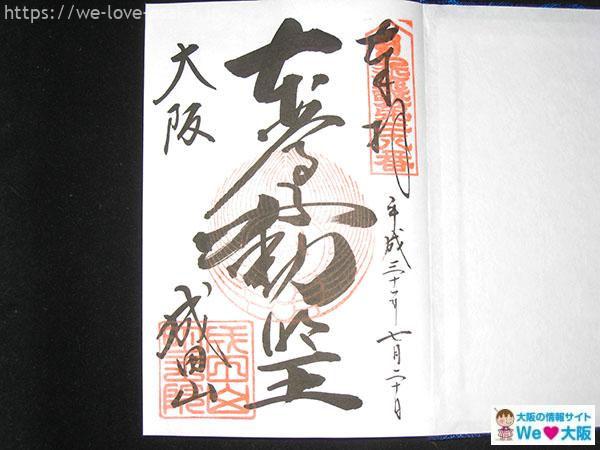 https://we-love-
奉拝
平成三十年七月二十日
本尊不動明王
大阪
成田山
大阪の情報サイト
We♥大阪